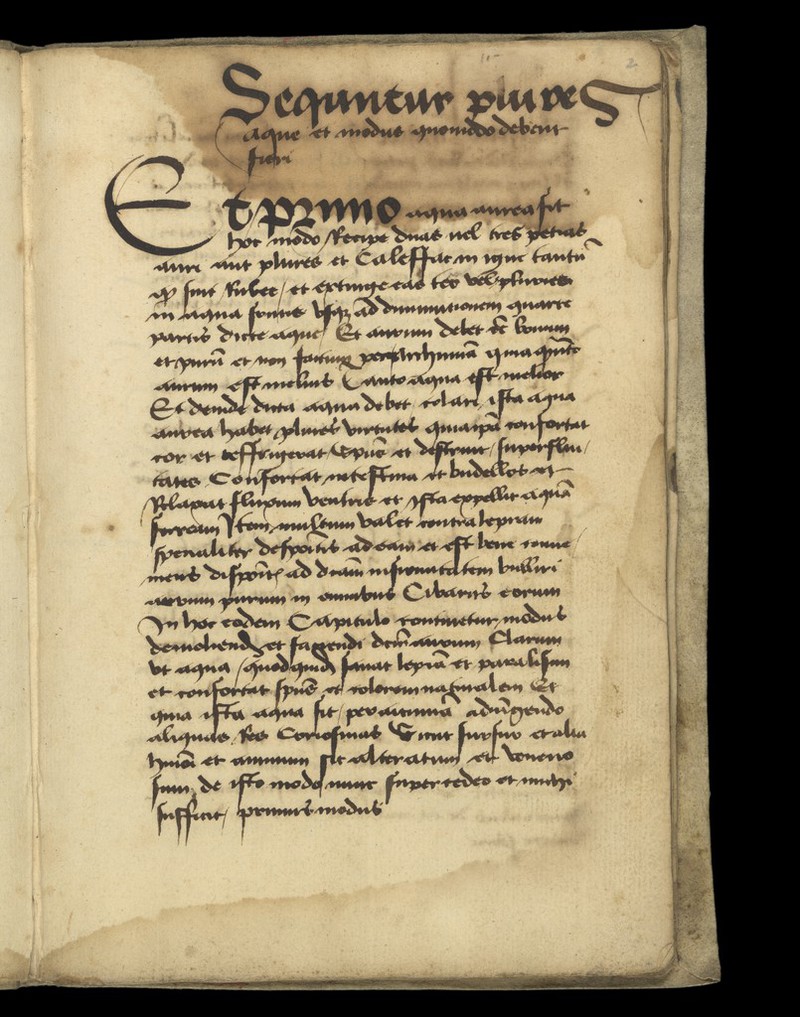 Sequntur plures
aque et modus quomodo debent
fieri
Et primo aqua aurea fit
hoc modo Recipe duas vel tres petias
auri aut plures et Caleffac in igne tantū
qͥ sint Rubee / et extingue eas ter vel pluries
in aqua fontis vsqꝫ ad diminutionem quarte
partis dicte aque / Et aurum debet eē bonum
et purū et non factum per archimiā quia quāto
aurum est melius tanto aqua est melior
Et deinde dicta aqua debet colari ista aqua
aurea habet plures virtutes quia ipā confortat
cor et reffrigerat spūs et destruit / superflui /
tates Confortat intestina et budellos et
Relaxat fluxum ventris et ista expellit aquā
Item multum valet contra lepram
specialiter ad eam et est bene conue /
niens ad dictam infirmitatem bulliri
aurum purum in omnibus Cibariis eorum
In hoc eodem Capitulo continetur modus
demoliendi et faciendi dcm̄ aurum Clarum
vt aqua / quod quidem sanat leprā et paralisim
et confortat spūs et colorem naturalem Et
quia ista aqua fit / per adiungendo
aliquas Res Corosiuas Sicut sulfur et alia
huiōi et aurum sit alteratum et
de isto modo nunc supercedeo et michi
sufficit / primus modus